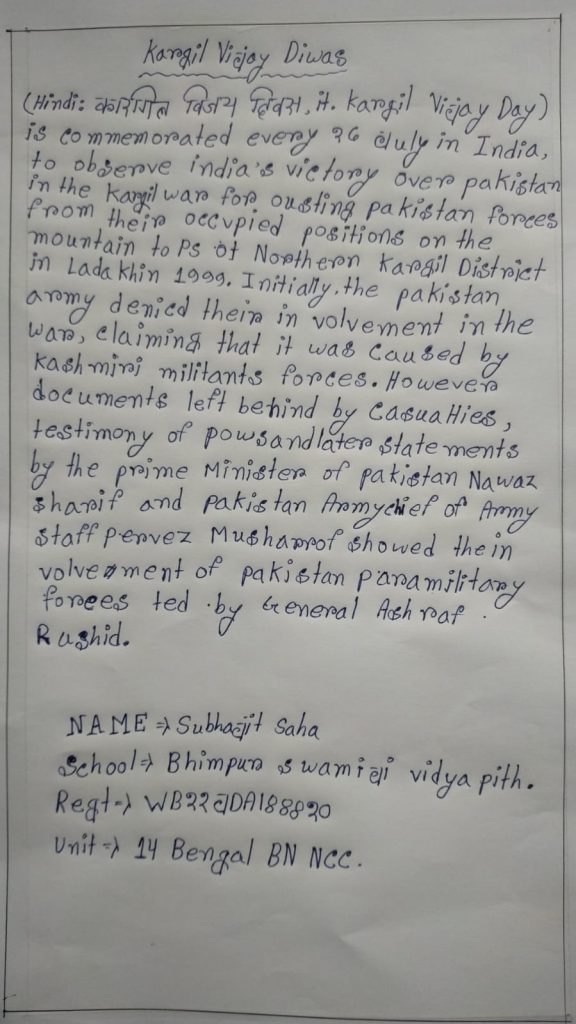 Kargil Vijay Diwas
(Hindi: कारगिल विजय दिवस, it. Kargil Vijay Day)
is commemorated every 26 July in India,
to observe india's victory over pakistan
in the Kargil war for ousting pakistan forces
from their occupied positions on the
mountain to Ps of Northern Kargil District
in Lada khin 1999. Initially, the pakistan
army denied their in volvement in the
war, claiming that it was caused by
Kashmiri militants forces. However
documents left behind by Casualties,
testimony of powsandlater state ments
by the prime Minister of pakistan Nawaz
sharif and pakistan Armychief of Army
staff pervez Musharrof showed the in
volvement of pakistan paramilitary
forces ted by General Ashraf
Rushid.
NAME ⇒ Subhajit Saha
School ⇒ Bhimpur swamiji vidya pith.
Regt ⇒ WB22JDA188820
Unit ⇒ 14 Bengal BN NCC.